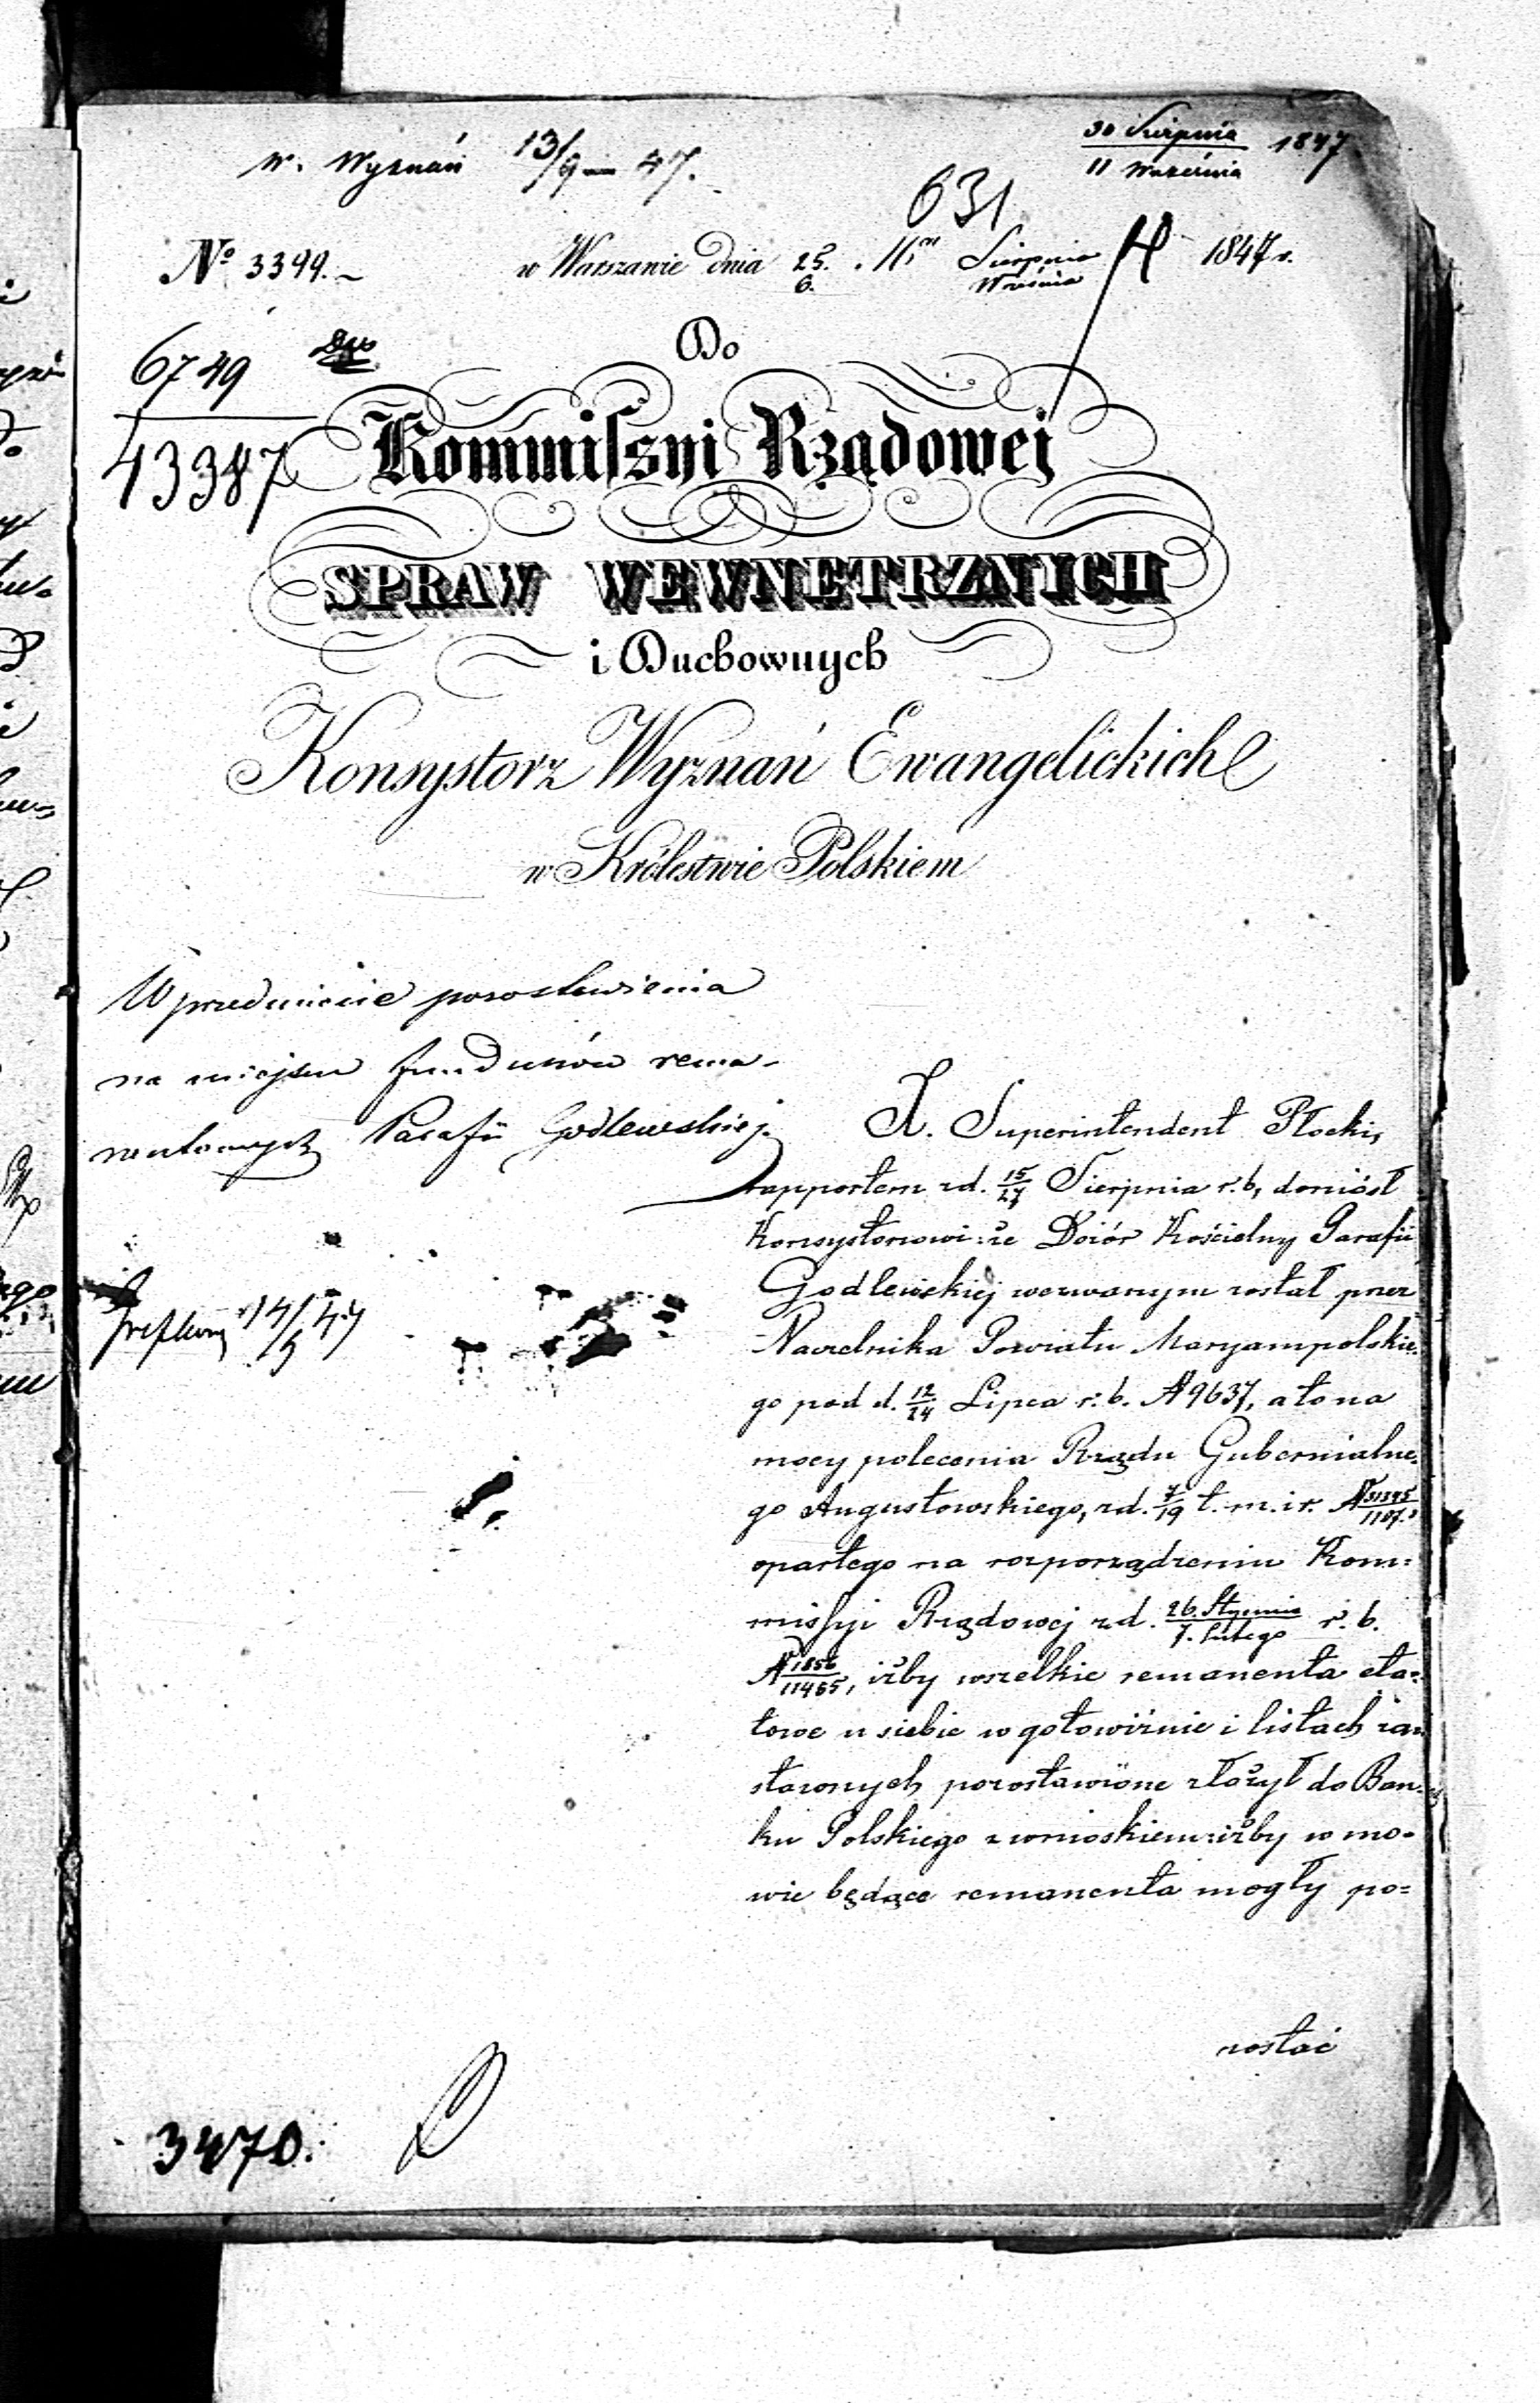 w. Wyznań 13/9 — 47.
30 Sierpnia / 11 Września 1847
631
Nº 3399. w Warszawie dnia 25. / 6. Sierpnia / Września 1847 r.
6749 / 43387
Do
Kommissyi Rządowej
SPRAW WEWNĘTRZNYCH
i Duchownych
Konsystorz Wyznań Ewangelickich
w Królestwie Polskiem
W przedmiocie pozostawienia
na miejscu funduszów rema-
nentowych Parafii Godlewskiej.
X. Superintendent Płocki,
rapportem z d. 15/27 Sierpnia r. b, doniósł
Konsystorzowi: że Dozór Kościelny Parafii
Godlewskiej wezwanym został przez
Naczelnika Powiatu Maryampolskie-
go pod d. 12/24 Lipca r. b. N 9637, a to na
mocy polecenia Rządu Gubernialne-
go Augustowskiego, z d. 7/19 t. m. i r. N 31345/1107.
opartego na rozporządzeniu Kom=
missyi Rządowej z d. 26. Stycznia / 7. Lutego r. b.
N 1856/11465, iżby wszelkie remanenta eta=
towe u siebie w gotowiźnie i listach za=
stawnych pozostawione złożył do Ban=
ku Polskiego z wnioskiem: iżby w mo=
wie będące remanenta mogły po=
zostać
14/9 47
3470.